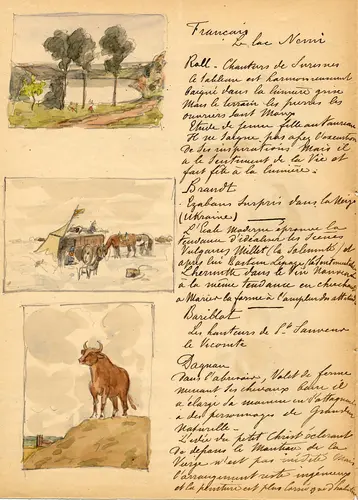 Français
Le lac Nemi
Roll - Chantiers de Suresnes
Le tableau est harmonieusement
baigné dans la lumière grise
Mais le terrain les pierres les
ouvriers sont Mous
Etude de femme fille au taureau
Il ne soigne pas assez l'execution
de ses inspirations Mais il
a le sentiment de la Vie et
fait fête à la lumière.
Brandt
Cosaques surpris dans la Neige
(Ukraine)
L'Ecole Moderne éprouve la
tendance d'idéaliser les scènes
Vulgaires Millet (la Solemnité) et
après lui Bastien Lepage
Lhermitte dans le Vin
a la même tendance en cherchant
a Marier la forme à l'ampleur
Bariblot
Les hauteurs de St Sauveur
le Vicomte
Dagnan
dans l'abreuvoir, Valet de ferme
menant ses chevaux boire il
a élargi sa manière en s'attaquant
a des personnages de Grandeur
Naturelle -
L'idée du petit Christ éclairant
de dessous le Manteau de la
Vierge n'est pas Mais
l'arrangement reste ingénieux
et la peinture est plus